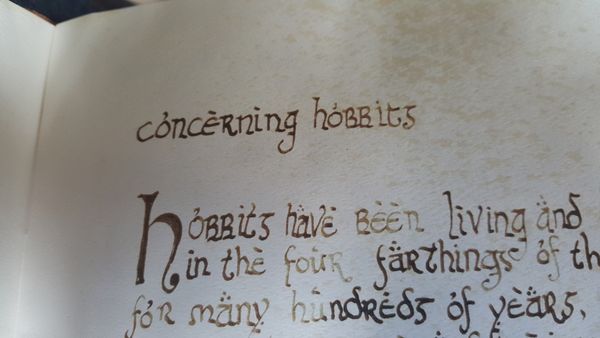 concerning hobbits
hobbits have been living and
in the four farthings of th
for many hundreds of years,